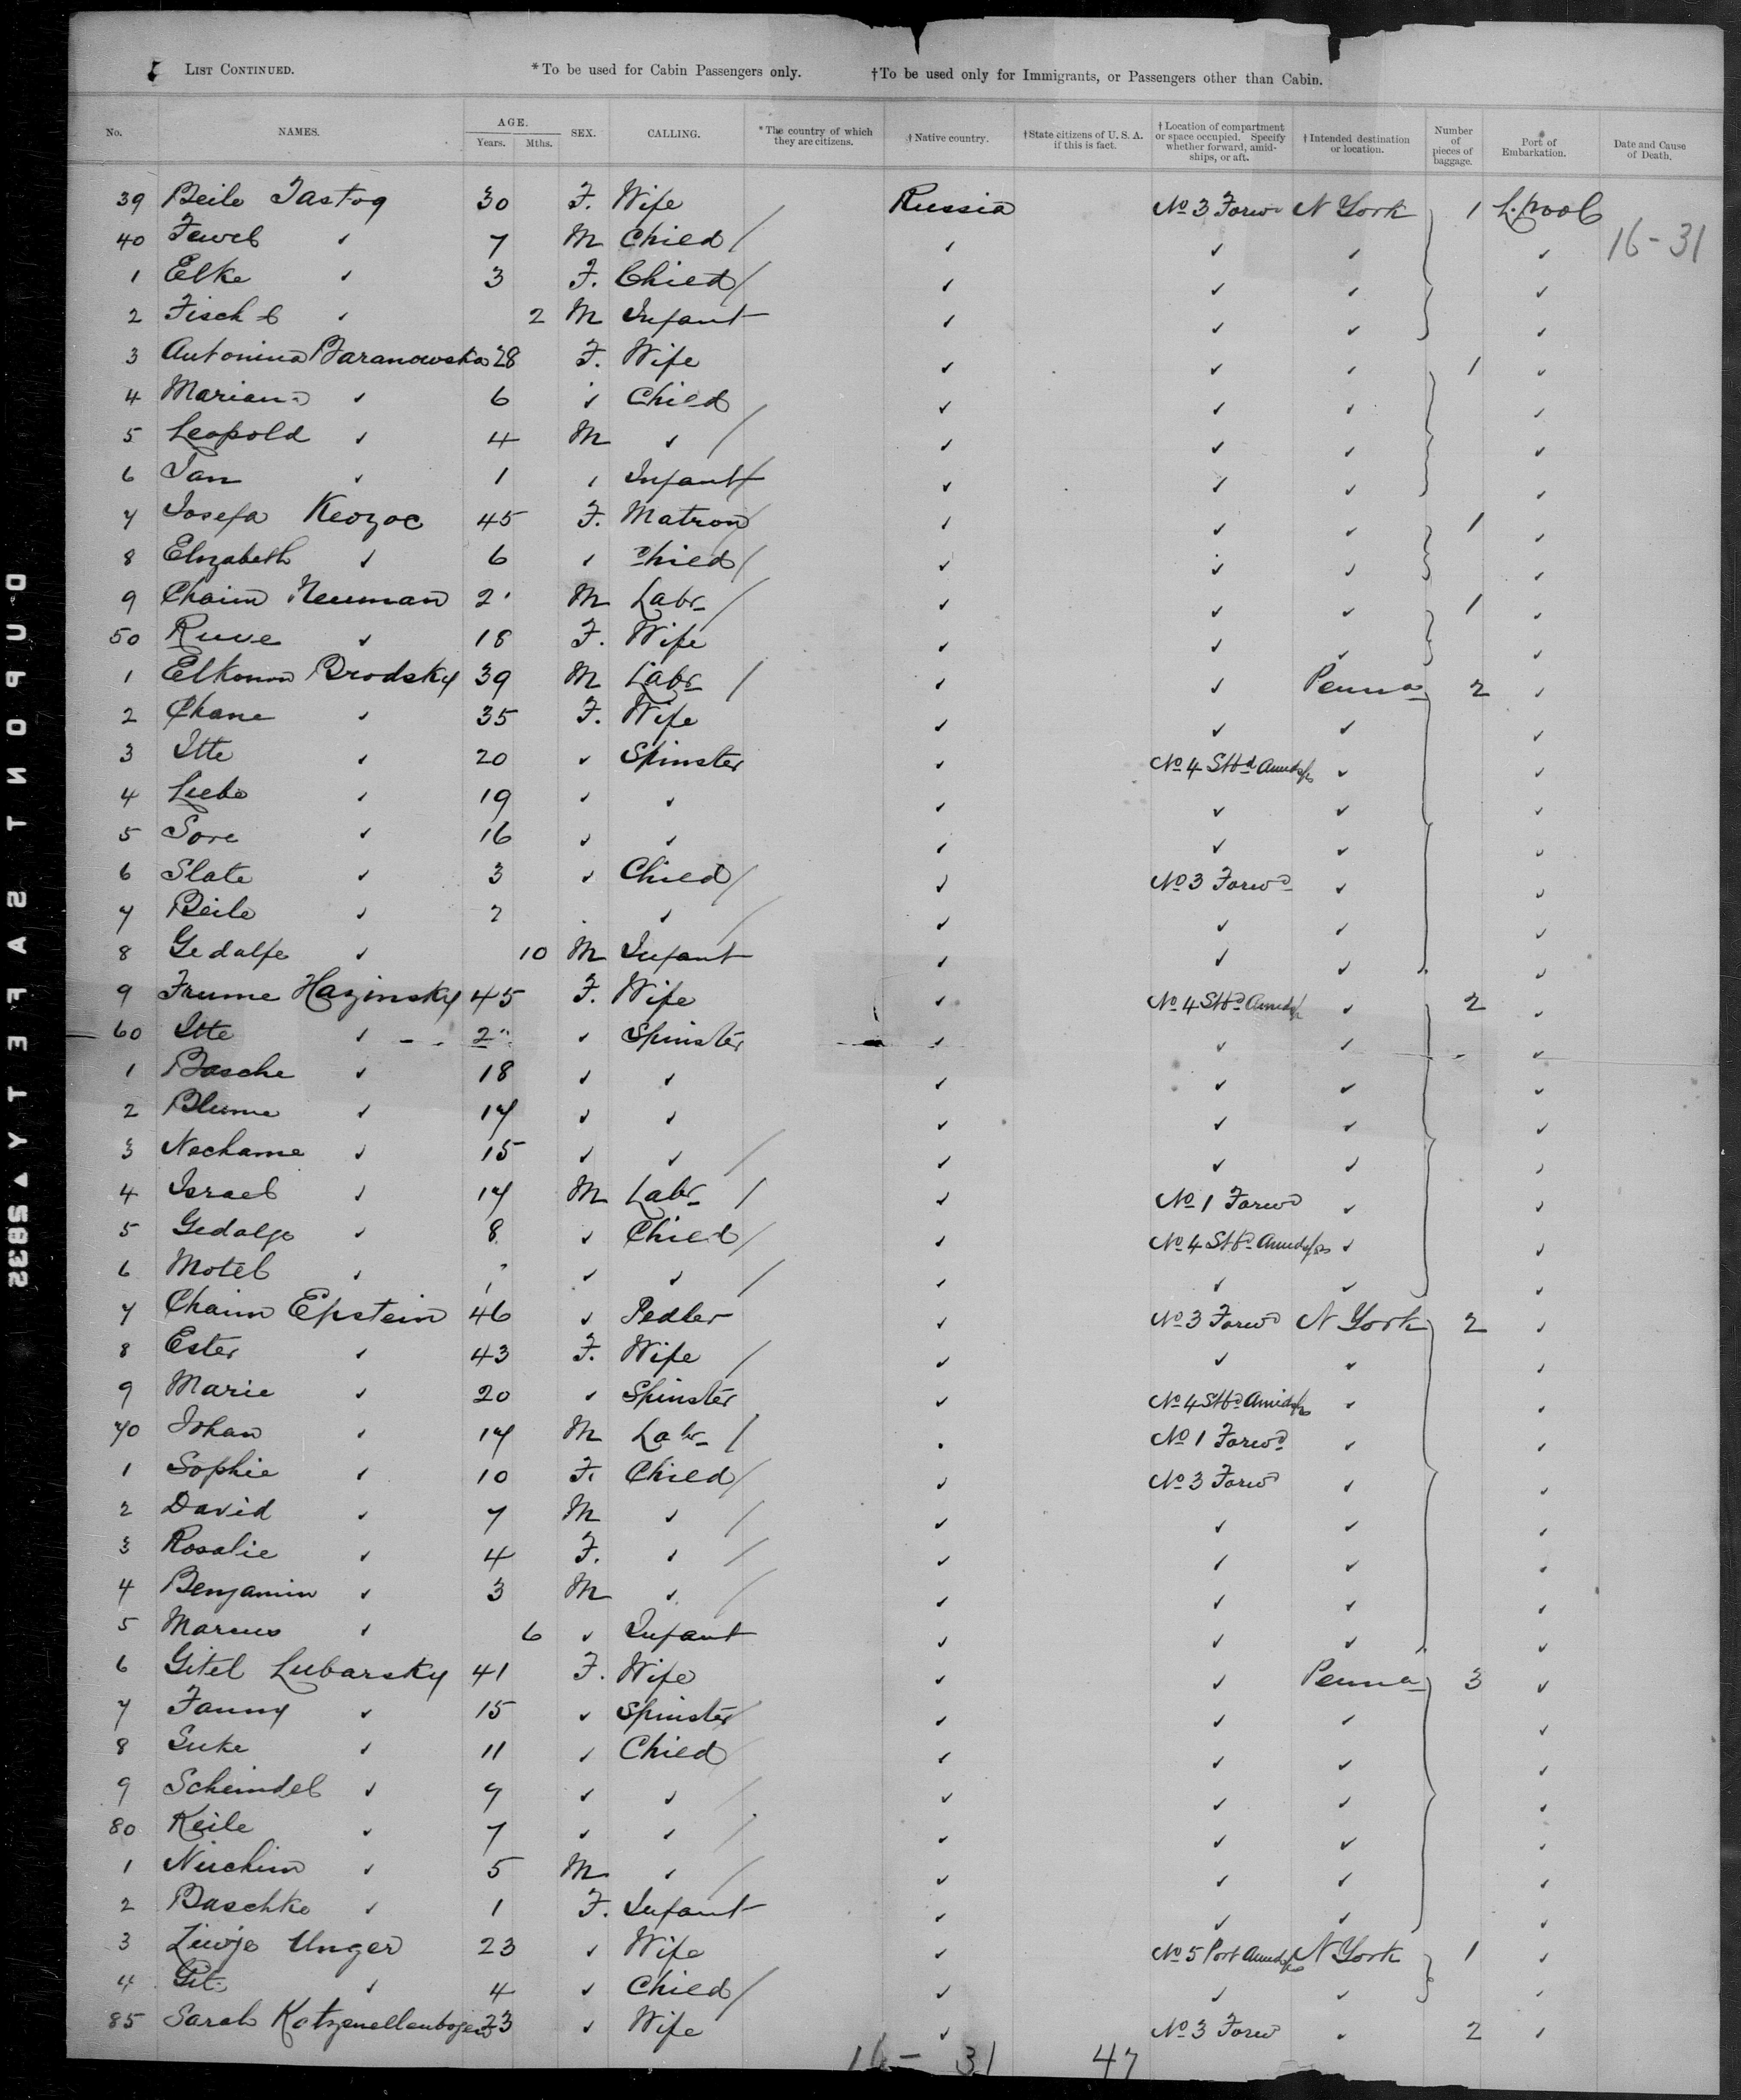 LIST CONTINUED. *To be used for Cabin Passengers only. †To be used only for Immigrants, or Passengers other than Cabin.
No. NAMES. AGE. Years. Mths. SEX. CALLING. *The country of which they are citizens. †Native country. †State citizens of U. S. A. if this is fact. †Location of compartment or space occupied. Specify whether forward, amidships, or aft. †Intended destination or location. Number of pieces of baggage. Port of Embarkation. Date and Cause of Death.
39 Beile 30 F. Wife Russia No 3 Forwd N York 1 L.pool
16-31
40 Fewel ✓ 7 M Child / ✓ ✓ ✓ ✓
1 Elke ✓ 3 F. Child / ✓ ✓ ✓ ✓
2 Fischel ✓ 2 M Infant ✓ ✓ ✓ ✓
3 Antonina Baranowska 28 F. Wife ✓ ✓ ✓ 1 ✓
4 Mariana ✓ 6 ✓ Child ✓ ✓ ✓ ✓
5 Leopold ✓ 4 M ✓ / ✓ ✓ ✓ ✓
6 Jan ✓ 1 ✓ Infant ✓ ✓ ✓ ✓
7 Josefa 45 F. Matron ✓ ✓ ✓ 1 ✓
8 Elizabeth ✓ 6 ✓ Child / ✓ ✓ ✓ ✓
9 Chaim Neuman M Labr / ✓ ✓ ✓ 1 ✓
50 Ruve ✓ 18 F. Wife ✓ ✓ ✓ ✓
1 Elkonon Brodsky 39 M Labr / ✓ ✓ Penna 2 ✓
2 Chane ✓ 35 F. Wife ✓ ✓ ✓ ✓
3 Itte ✓ 20 ✓ Spinster ✓ No 4 Stbd Amidsps ✓ ✓
4 Liebe ✓ 19 ✓ ✓ ✓ ✓ ✓ ✓
5 Sore ✓ 16 ✓ ✓ ✓ ✓ ✓ ✓
6 Slate ✓ 3 ✓ Child / ✓ No 3 Forwd ✓ ✓
7 Beile ✓ 2 ✓ / ✓ ✓ ✓ ✓
8 Gedalje ✓ 10 M Infant ✓ ✓ ✓ ✓
9 Frume Hazinsky 45 F. Wife ✓ No 4 Stbd Amidsps ✓ 2 ✓
60 Itte ✓ ✓ Spinster ✓ ✓ ✓ ✓
1 Basche ✓ 18 ✓ ✓ ✓ ✓ ✓ ✓
2 Blume ✓ 17 ✓ ✓ ✓ ✓ ✓ ✓
3 Nechame ✓ 15 ✓ ✓ / ✓ ✓ ✓ ✓
4 Israel ✓ 14 M Labr / ✓ No 1 Forwd ✓ ✓
5 Gedalje ✓ 8 ✓ Child / ✓ No 4 Stbd Amidsps ✓ ✓
6 Motel ✓ ✓ ✓ / ✓ ✓ ✓ ✓
7 Chaim Epstein 46 ✓ Pedler ✓ No 3 Forwd N York 2 ✓
8 Ester ✓ 43 F. Wife / ✓ ✓ ✓ ✓
9 Marie ✓ 20 ✓ Spinster ✓ No 4 Stbd Amidsps ✓ ✓
70 Johan ✓ 14 M Labr / No 1 Forwd ✓ ✓
1 Sophie ✓ 10 F. Child / ✓ No 3 Forwd ✓ ✓
2 David ✓ 7 M ✓ / ✓ ✓ ✓ ✓
3 Rosalie ✓ 4 F. ✓ / ✓ ✓ ✓ ✓
4 Benjamin ✓ 3 M ✓ / ✓ ✓ ✓ ✓
5 Marcus ✓ 6 ✓ Infant ✓ ✓ ✓ ✓
6 Gitel Lubarsky 41 F. Wife ✓ ✓ Penna 3 ✓
7 Fanny ✓ 15 ✓ Spinster / ✓ ✓ ✓ ✓
8 ✓ 11 ✓ Child ✓ ✓ ✓ ✓
9 Scheindel ✓ 9 ✓ ✓ / ✓ ✓ ✓ ✓
80 Keile ✓ 7 ✓ ✓ / ✓ ✓ ✓ ✓
1 ✓ 5 M ✓ / ✓ ✓ ✓ ✓
2 Baschke ✓ 1 F. Infant ✓ ✓ ✓ ✓
3 Unger 23 ✓ Wife ✓ No 5 Port Amidsps N York 1 ✓
4 ✓ 4 ✓ Child / ✓ ✓ ✓ ✓
85 Sarah Katzenellenbogen 23 ✓ Wife ✓ No 3 Forwd ✓ 2 ✓
16- 31 47
DUPONT SAFETY ▲ S832